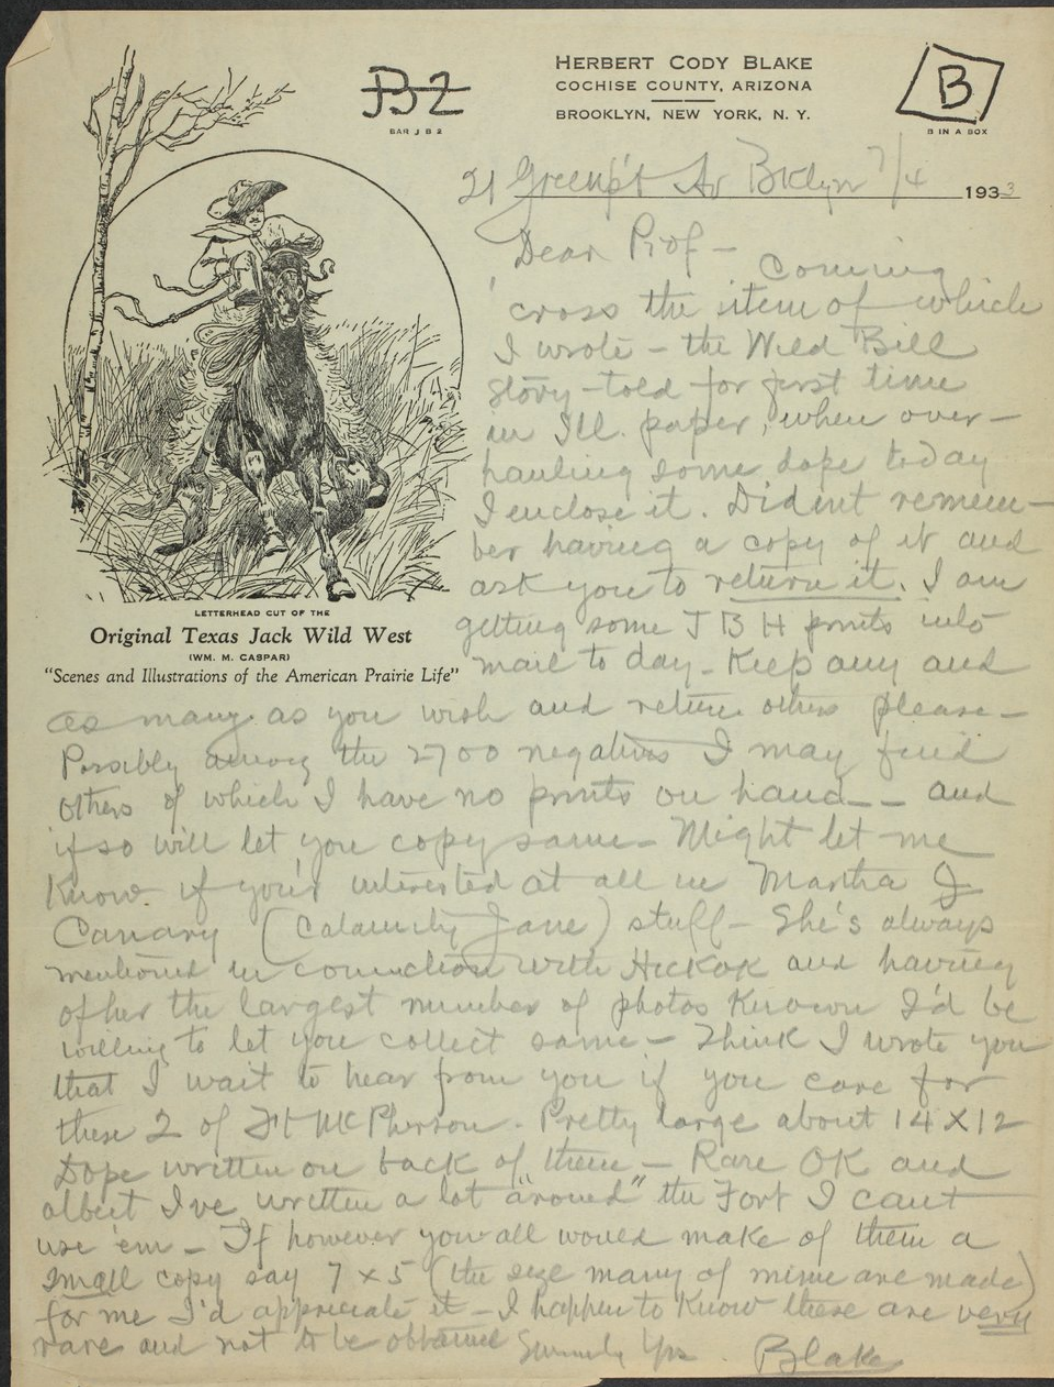 HERBERT CODY BLAKE
COCHISE COUNTY, ARIZONA
BROOKLYN, NEW YORK, N. Y.
JB2
BAR J B 2
B
B IN A BOX
21 Greenp't Av Bklyn 7/4 1933
Dear Prof - Coming
'cross the item of which
I wrote - the Wild Bill
story - told for first time
in Ill. paper, when over-
hauling some dope today
I enclose it. Did'nt remem-
ber having a copy of it and
ask you to return it. I am
getting some J B H prints into
mail to day - Keep any and
LETTERHEAD CUT OF THE
Original Texas Jack Wild West
(WM. M. CASPAR)
"Scenes and Illustrations of the American Prairie Life"
as many as you wish and return others please -
Possibly among the 2700 negatives I may find
others of which I have no prints on hand -- and
if so will let you copy same - Might let me
Know if you'r interested at all in Martha J
Canary (Calamity Jane) stuff - She's always
mentioned in connection with Hickok and having
of her the largest number of photos Known I'd be
willing to let you collect same - Think I wrote you
that I wait to hear from you if you care for
these 2 of Ft McPherson. Pretty large about 14 x 12
Dope written on back of them - Rare OK and
albeit I've written a lot "around" the Fort I cant
use 'em - If however you-all would make of them a
small copy say 7 x 5 (the size many of mine are made)
for me I'd appreciate it - I happen to Know these are very
rare and not to be obtained Sincerely Yrs. Blake